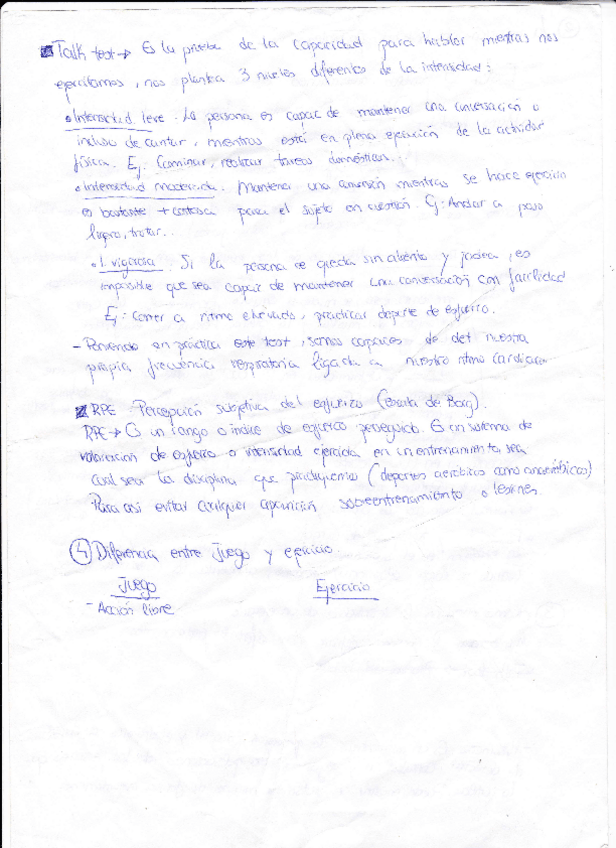 Talk test → Es la prueba de la capacidad para hablar mientras nos
ejercitamos, nos plantea 3 niveles diferentes de la intensidad:
• Intensidad leve. La persona es capaz de mantener una conversación o
incluso de cantar, mientras está en plena ejecución de la actividad
física. Ej: Caminar, realizar tareas domésticas...
• Intensidad moderada. Mantener una conversión mientras se hace ejercicio
es bastante + costosa para el sujeto en cuestión. Ej: Andar a paso
ligero, trotar...
• I. vigorosa. Si la persona se queda sin aliento y jadea, es
imposible que sea capaz de mantener una conversación con facilidad
Ej: Correr a ritmo elevado, practicar deporte de esfuerzo.
- Poniendo en práctica este test, somos capaces de det nuestra
propia frecuencia respiratoria ligada a nuestro ritmo cardiaco.
RPE: Percepción subjetiva del esfuerzo (escala de Borg).
RPE → Es un rango o índice de esfuerzo percibido. Es un sistema de
valoración de esfuerzo o intensidad ejercida en un entrenamiento, sea
cual sea la disciplina que (deportes aeróbicos como anaeróbicos)
Para así evitar cualquier aparición sobreentrenamiento o lesiones.
4 Diferencia entre juego y ejercicio
Juego Ejercicio
- Acción libre